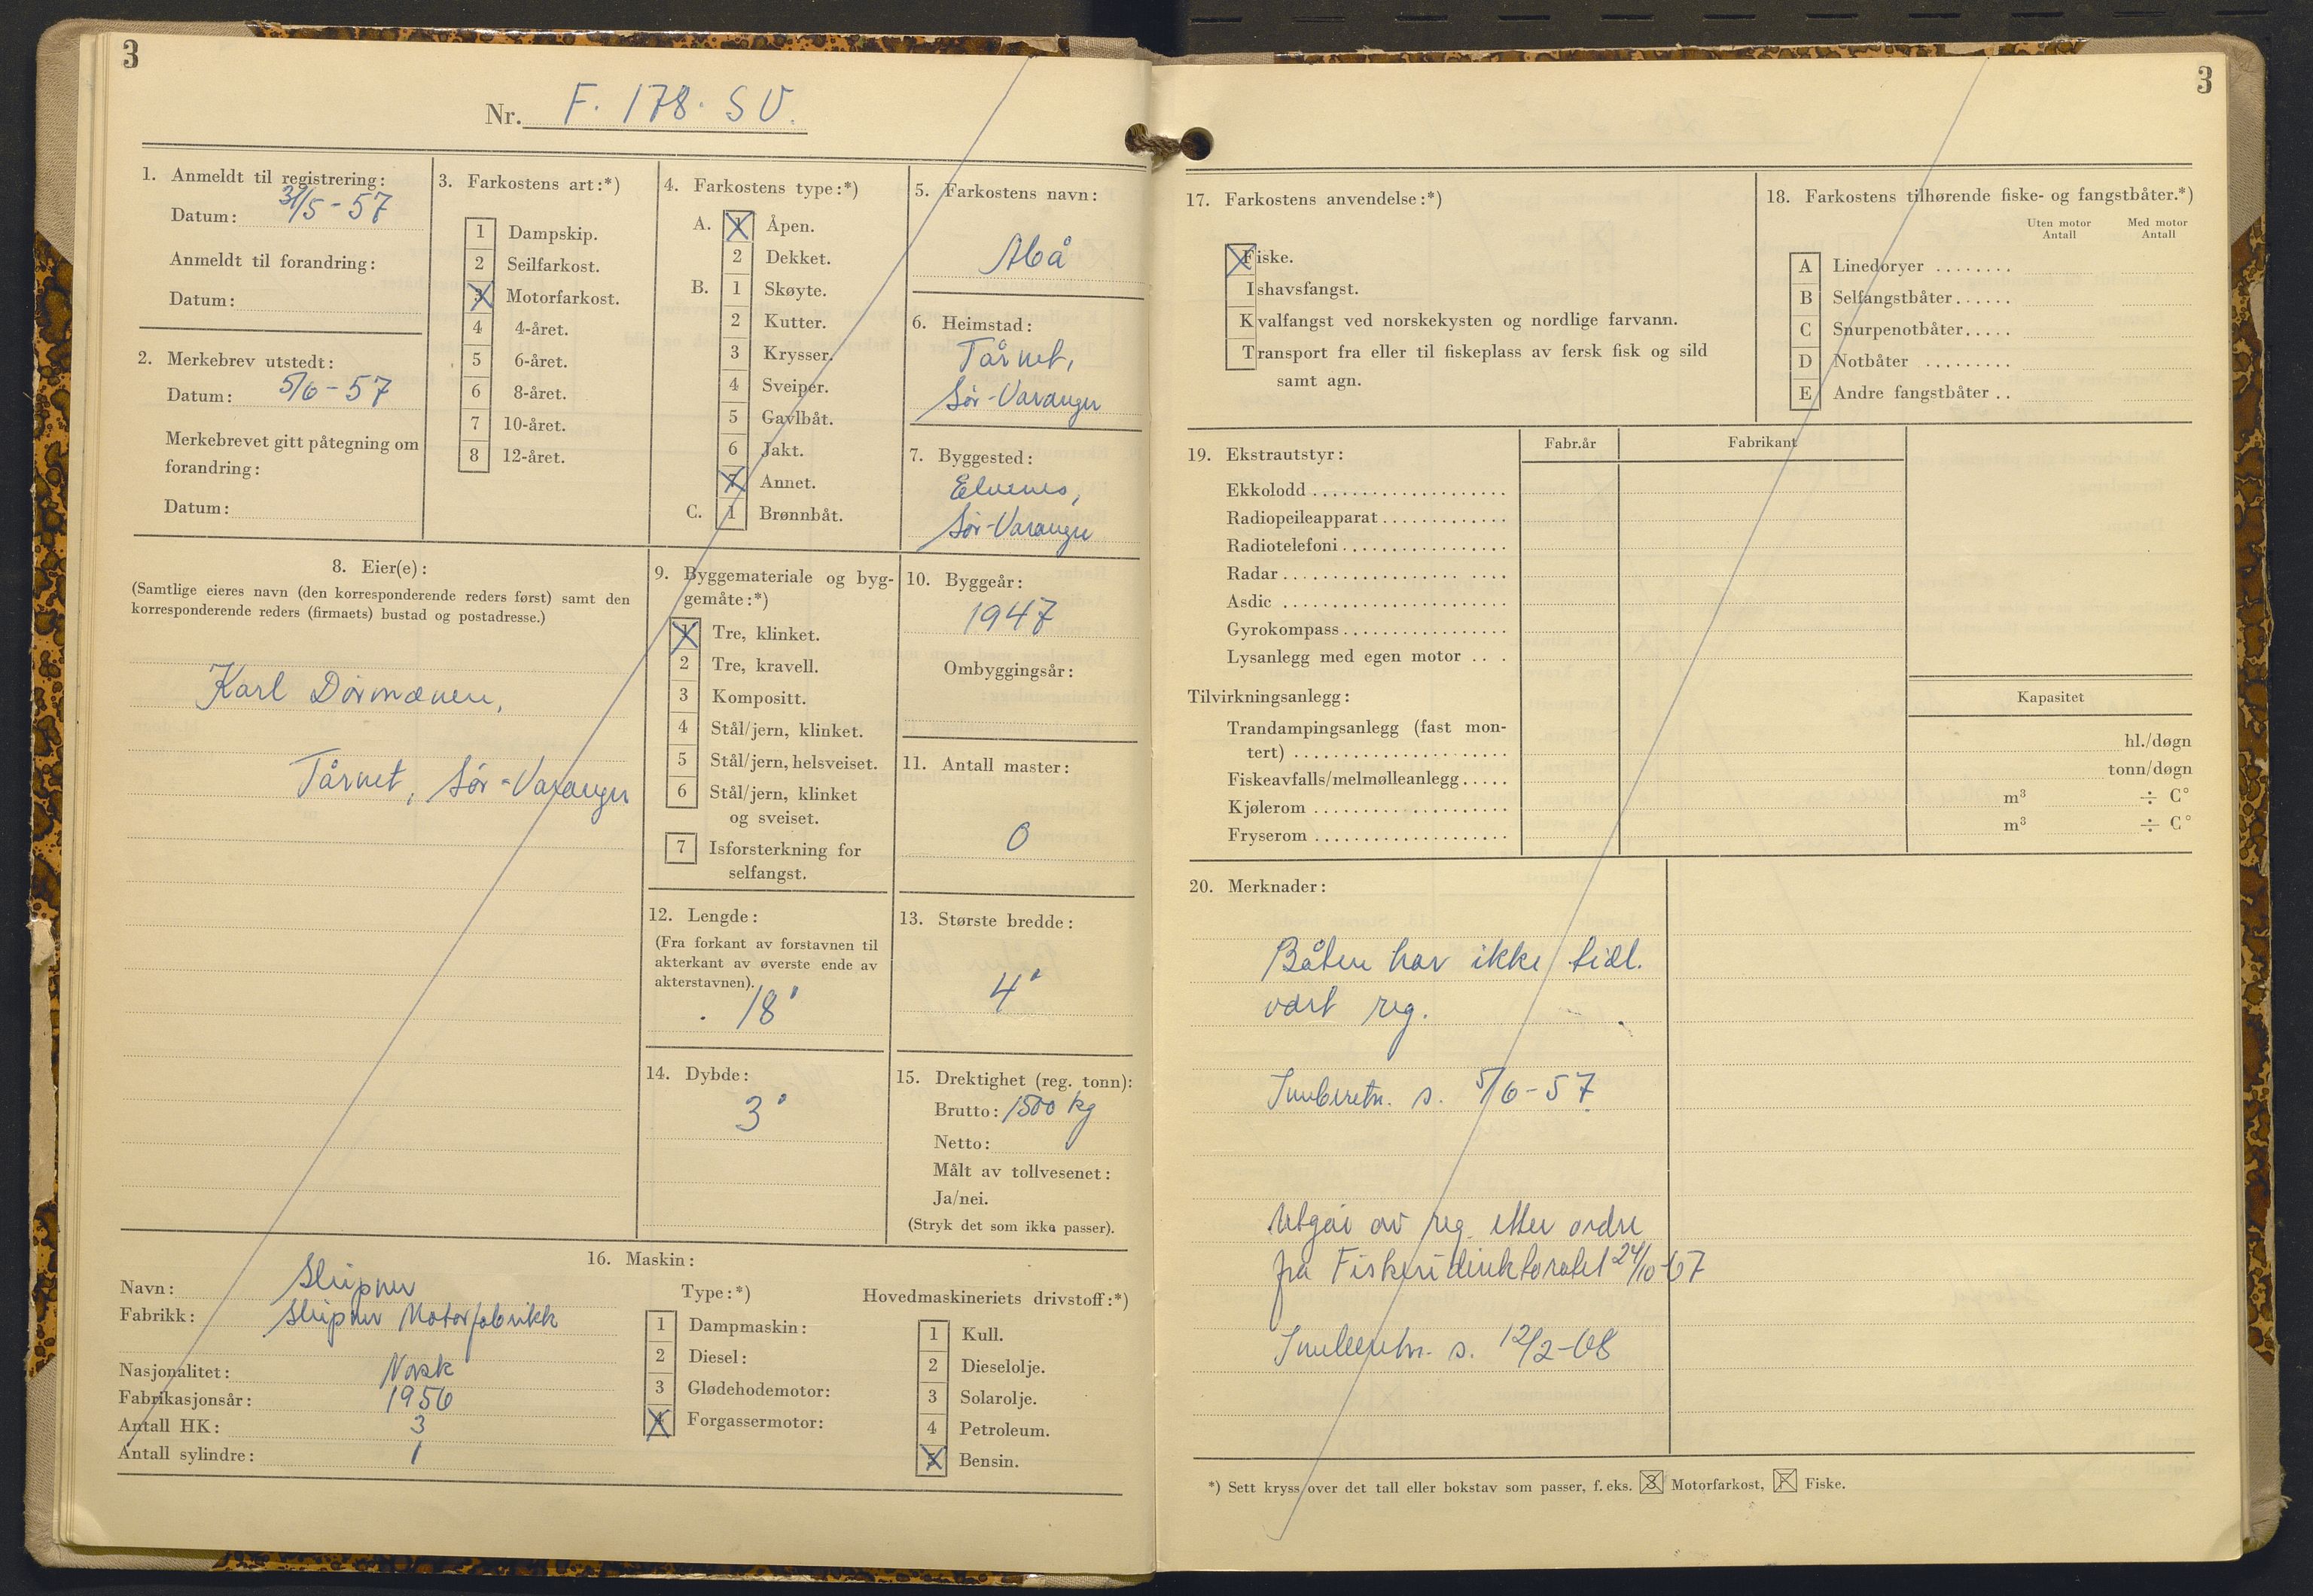 3
Nr. F. 178. S V.
1. Anmeldt til registrering:
Datum: 31/5-57
Anmeldt til forandring:
Datum:
2. Merkebrev utstedt:
Datum: 5/6-57
Merkebrevet gitt påtegning om
forandring:
Datum:
3. Farkostens art:*)
1 Dampskip.
2 Seilfarkost.
3 Motorfarkost.
4 4-året.
5 6-året.
6 8-året.
7 10-året.
8 12-året.
4. Farkostens type:*)
A. 1 Åpen.
2 Dekket.
B. 1 Skøyte.
2 Kutter.
3 Krysser.
4 Sveiper.
5 Gavlbåt.
6 Jakt.
7 Annet.
C. 1 Brønnbåt.
5. Farkostens navn:
6. Heimstad:
Tårnet,
Sør-Varanger
7. Byggested:
Elvenes,
Sør-Varanger
8. Eier(e):
(Samtlige eieres navn (den korresponderende reders først) samt den
korresponderende reders (firmaets) bustad og postadresse.)
Karl Dørmænen,
Tårnet, Sør-Varanger
9. Byggemateriale og byg-
gemåte:*)
1 Tre, klinket.
2 Tre, kravell.
3 Kompositt.
4 Stål/jern, klinket.
5 Stål/jern, helsveiset.
6 Stål/jern, klinket
og sveiset.
7 Isforsterkning for
selfangst.
10. Byggeår:
1947
Ombyggingsår:
11. Antall master:
0
12. Lengde:
(Fra forkant av forstavnen til
akterkant av øverste ende av
akterstavnen).
18'
13. Største bredde:
4'
14. Dybde:
3'
15. Drektighet (reg. tonn):
Brutto: 1500 kg
Netto:
Målt av tollvesenet:
Ja/nei.
(Stryk det som ikke passer).
16. Maskin:
Navn: Sleipner
Fabrikk: Sleipner Motorfabrikk
Nasjonalitet: Norsk
Fabrikasjonsår: 1956
Antall HK: 3
Antall sylindre: 1
Type:*)
1 Dampmaskin:
2 Diesel:
3 Glødehodemotor:
4 Forgassermotor:
Hovedmaskineriets drivstoff:*)
1 Kull.
2 Dieselolje.
3 Solarolje.
4 Petroleum.
5 Bensin.
3
17. Farkostens anvendelse:*)
Fiske.
Ishavsfangst.
Kvalfangst ved norskekysten og nordlige farvann.
Transport fra eller til fiskeplass av fersk fisk og sild
samt agn.
18. Farkostens tilhørende fiske- og fangstbåter.*)
Uten motor Antall
Med motor Antall
A Linedoryer ........
B Selfangstbåter......
C Snurpenotbåter.....
D Notbåter .........
E Andre fangstbåter ..
19. Ekstrautstyr:
Fabr.år
Fabrikant
Ekkolodd ....................
Radiopeileapparat .............
Radiotelefoni .................
Radar ......................
Asdic .......................
Gyrokompass .................
Lysanlegg med egen motor ...
Tilvirkningsanlegg:
Kapasitet
Trandampingsanlegg (fast mon-
tert) ...................... hl./døgn
Fiskeavfalls/melmølleanlegg ..... tonn/døgn
Kjølerom .................... m³ ÷ C°
Fryserom .................... m³ ÷ C°
20. Merknader:
Båten har ikke tidl.
vært reg.
Innberetn. s. 5/6-57
Utgår av reg. etter ordre
fra Fiskeridirektoratet 24/10-67
Innberetn. s. 12/2-68
*) Sett kryss over det tall eller bokstav som passer, f. eks. 3 Motorfarkost, F Fiske.